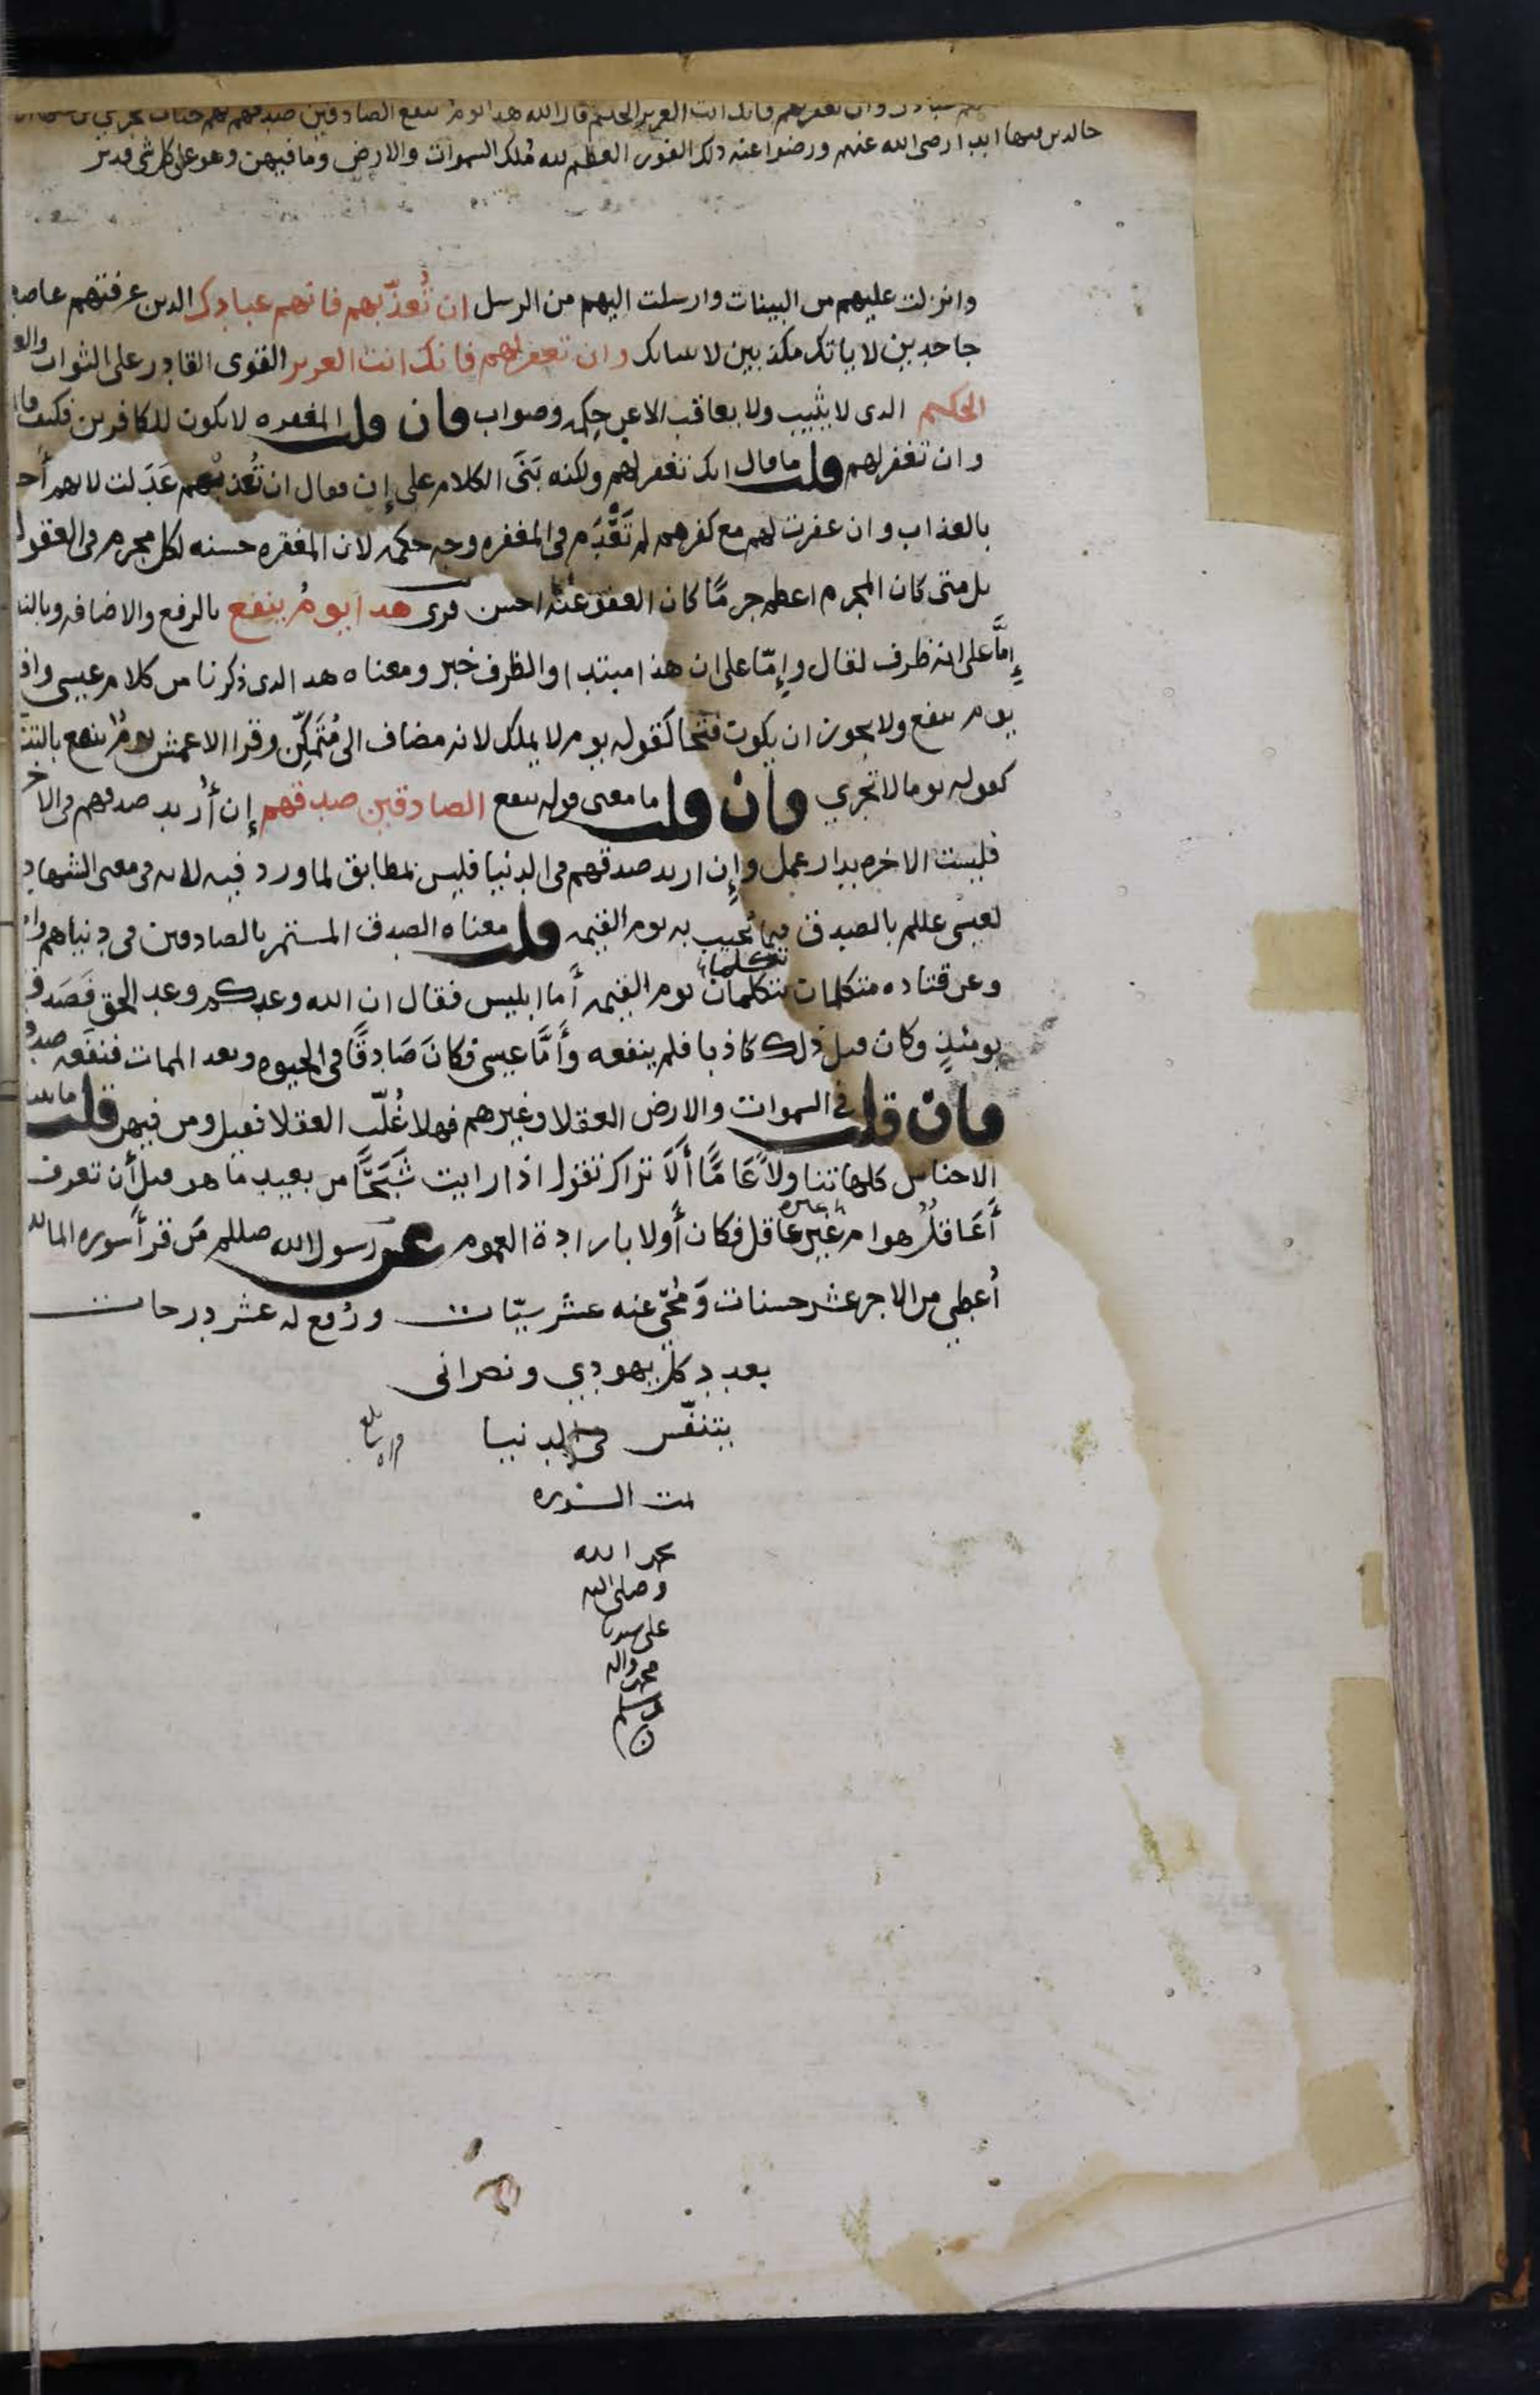 وان تغفر لهم فانك انت العزيز الحكيم قال الله هدا يوم ينفع الصادقين صدقهم لهم جنات تجري من
خالدين فيها ابدا رضى الله عنهم ورضوا عنه ذلك الفوز العظيم لله ملك السموات والارض وما فيهن وهو على كل شى قدير
وانزلت عليهم من البينات وارسلت اليهم من الرسل ان تُعذّبهم فانهم عبادك الذين عرفتهم عاصين
جاحدين لاياتك مكذبين لانبيائك وان تغفر لهم فانك انت العزيز القوى القادر على الثواب والعـ
الحكيم الدى لا يثيب ولا يعاقب الا عن حكمه وصواب فان قلت المغفره لا يكون للكافرين فكيف قال
وان تغفر لهم قلت ما قال انك تغفر لهم ولكنه بَنَى الكلام على إن فقال ان تُعذبهم عَدَلت لانهم أحـ
بالعذاب وان غفرت لهم مع كفرهم لم تَعْدَم فى المغفره وجه حكمه لان المغفره حسنه لكل مجرم فى العقول
بل متى كان المجرم اعظم جرمًا كان العفو عنه احسن قرى هدا يومُ ينفع بالرفع والاضافه وبالنـ
إمَّا على انه ظرف لقال وإمّا على ان هذا مبتدا والظرف خبر ومعناه هدا الدى ذكرنا من كلام عيسى واقـ
يوم ينفع ولا يجوز ان يكون فتحا كقوله يوم لا يملك لانه مضاف الى مُتَمَكِّن وقرا الاعمش يومٌ ينفع بالتنـ
كقوله يوما لا تجزي فان قلت ما معنى قوله ينفع الصادقين صدقهم إن أُريد صدقهم فى الاخـ
فليست الاخره بدار عمل وإن اريد صدقهم فى الدنيا فليس بمطابق لما ورد فيه لانه فى معنى الشهاد
لعيسى عللم بالصدق فيما يُجيب به يوم القيمه قلت معناه الصدق المستمر بالصادقين فى دنياهم وا
وعن قتاده متكلمان يتكلمان يوم القيمه أما ابليس فقال ان الله وعدكم وعد الحق فَصَدق
يومئذٍ وكان قبل ذلك كاذبا فلم ينفعه وأَمَّا عيسى فكانَ صَادِقًا فى الحيوه وبعد الممات فنفعه صدقـ
فان قلت فى السموات والارض العقلا وغيرهم فهلا غُلّب العقلا فقيل ومن فيهن قلت ما يتنا
الاجناس كلها تناولًا عَامًّا أَلَا تراك تقول اذا رايت شَبَحًا من بعيد ما هو قبل أن تعرف
أَعَاقلٌ هو ام غير عاقل فكان أَولا بارادة العموم عن رسول الله صللم مَن قرأ سوره المائد
أُعطي من الاجر عشر حسنات وَمُحِّى عنه عشر سيّات ورُفع له عشر درجات
بعدد كل يهودي ونصرانى
يتنفّس فى الدنيا
تمت السوره
بحمد الله
وصلى الله
على سيدنا
محمد واله